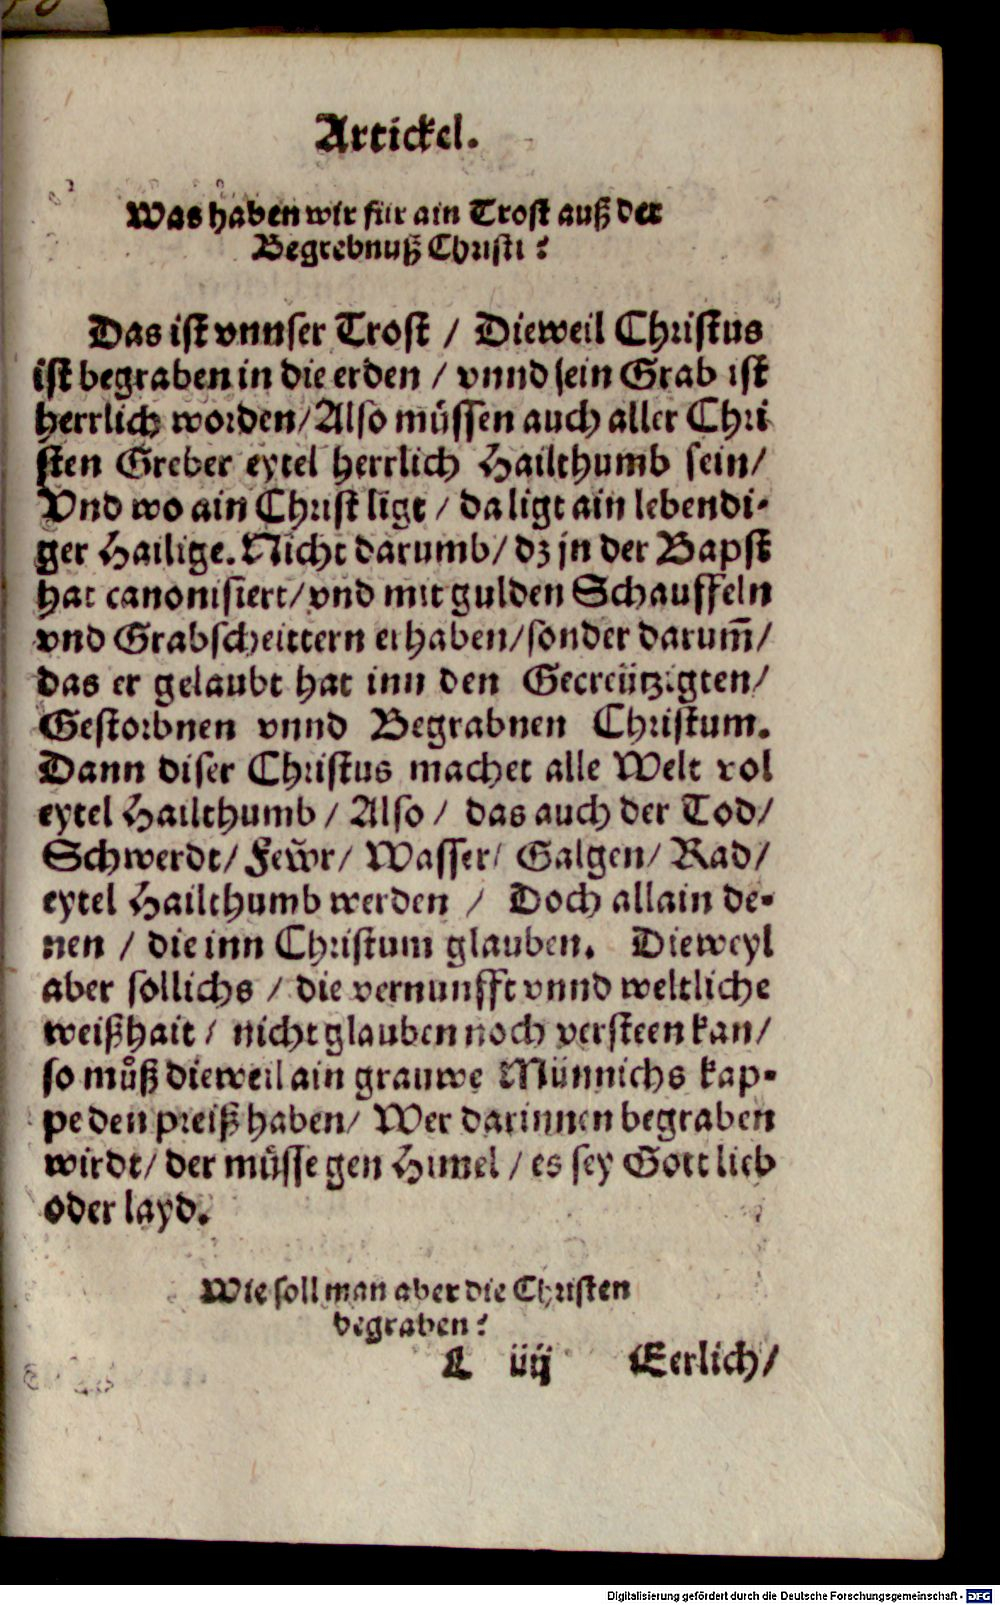 Artickel.
Was haben wir für ain Trost auß der
Begrebnuß Christi?
Das ist vnnser Trost / Dieweil Christus
ist begraben in die erden / vnnd sein Grab ist
herrlich worden/ Also müssen auch aller Chri
sten Greber eytel herrlich Hailthumb sein/
Vnd wo ain Christ ligt / da ligt ain lebendi-
ger Hailige. Nicht darumb/ dz jn der Bapst
hat canonisiert/ vnd mit gulden Schauffeln
vnd Grabscheittern erhaben/ sonder darum̃/
das er gelaubt hat inn den Gecreützigten/
Gestorbnen vnnd Begrabnen Christum.
Dann diser Christus machet alle Welt vol
eytel Hailthumb / Also / das auch der Tod/
Schwerdt/ Fewr/ Wasser/ Galgen/ Rad/
eytel Hailthumb werden / Doch allain de-
nen / die inn Christum glauben. Dieweyl
aber sollichs / die vernunfft vnnd weltliche
weißhait / nicht glauben noch versteen kan/
so můß dieweil ain grauwe Münnichs kap-
pe den preiß haben/ Wer darinnen begraben
wirdt/ der müsse gen Himel / es sey Gott lieb
oder layd.
Wie soll man aber die Christen
begraben?
L iiij Eerlich/
Digitalisierung gefördert durch die Deutsche Forschungsgemeinschaft - DFG